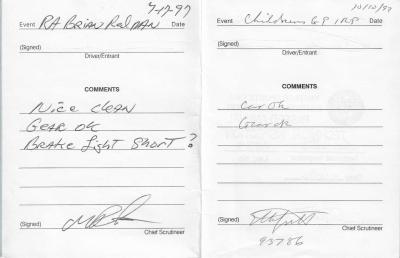 7-12-97
Event RA Brian Redman Date
(Signed)
Driver/Entrant
COMMENTS
Nice clean
Gear ok
Brake light short?
(Signed)
Chief Scrutineer
10/10/97
Event Childrens GP IRP Date
(Signed)
Driver/Entrant
COMMENTS
Car ok
Gear ok
(Signed)
Chief Scrutineer
93786